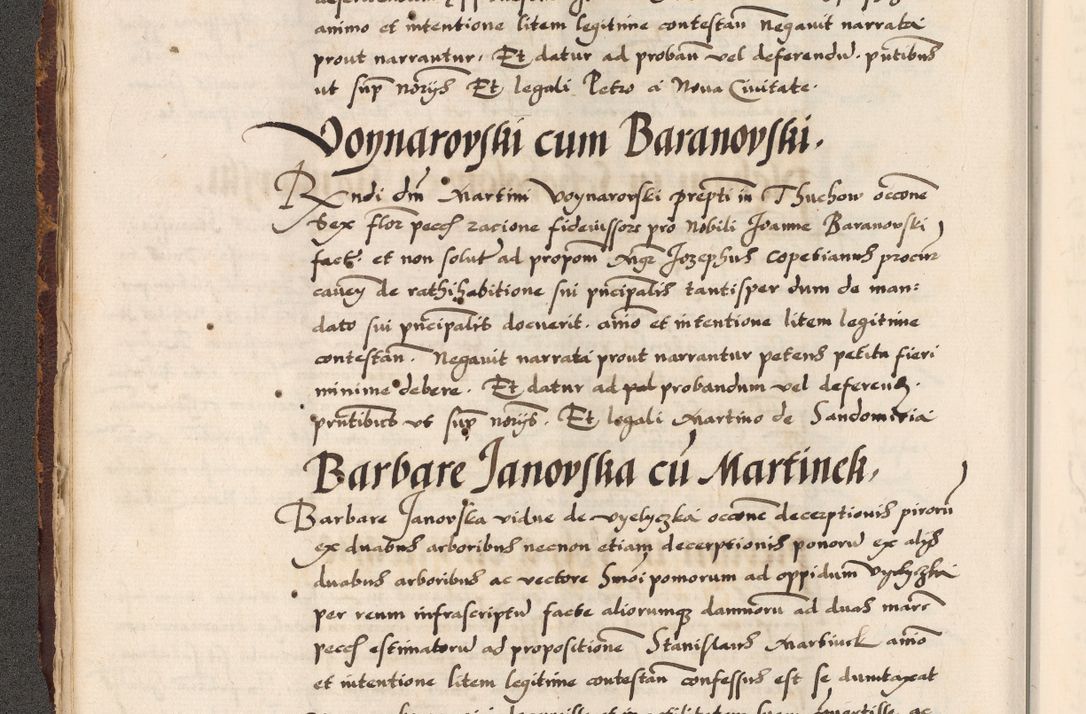 animo et intentione litem legitime contestan̄ Negauit narrata
prout narrantur. Et datur ad proban̄ vel deferendū. pn̄tibus
ut sup̄ norijs Et legali Petro a Noua Ciuitate.
Voynarovski cum Baranovski.
Rx̄ndi dn̄i Martini Voynarovski prep̄ti in Thuchow occōne
sex flor̄ pecc̄ racione fideiussore pro Nobili Joanne Baranovski
fact. et non solut ad propom̄ Mgr̄ Jozephus Copetianus procur̄
cauen̄ de rathihabitione sui pn̄cipalis tantisper dum de man:
dato sui pn̄cipalis docuerit. aīo et intentione litem legitime
contestan̄. Negauit narrata prout narrantur petens petita fieri
minime debere. Et datur ad pal probandum vel deferend.
pn̄tibus ut sup̄ norijs. Et legali Martino de Sandomiria
Barbare Janovska cū Martinek.
Barbare Janovska vidue de Vyelyczka occōne decerptionis pirorū
ex duabus arboribus necnon etiam decerptionis pomorū ex alijs
duabus arboribus ac vectore om̄i pomorum ad oppidum Vyelyczka
per reum infrascriptū facte aliorumq; damnorū ad duas marc̄
pecc̄ estimatorū ad propositionē Stanislaus Martinek aīo
et intentione litem legitime contestan̄ confessus est se duntaxat